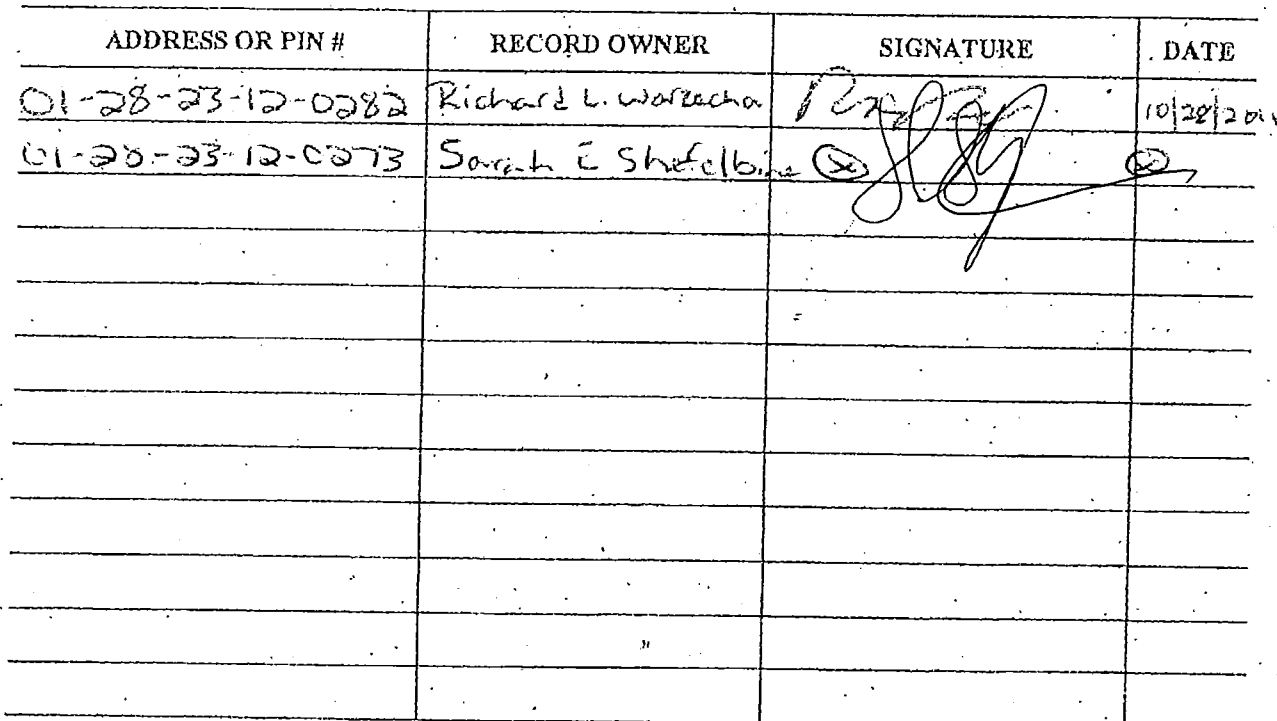 ADDRESS OR PIN # RECORD OWNER SIGNATURE DATE
01-28-23-12-0282 Richard L. Warzecha 10/28/201
01-28-23-12-0273 Sarah E Shefelbine X X